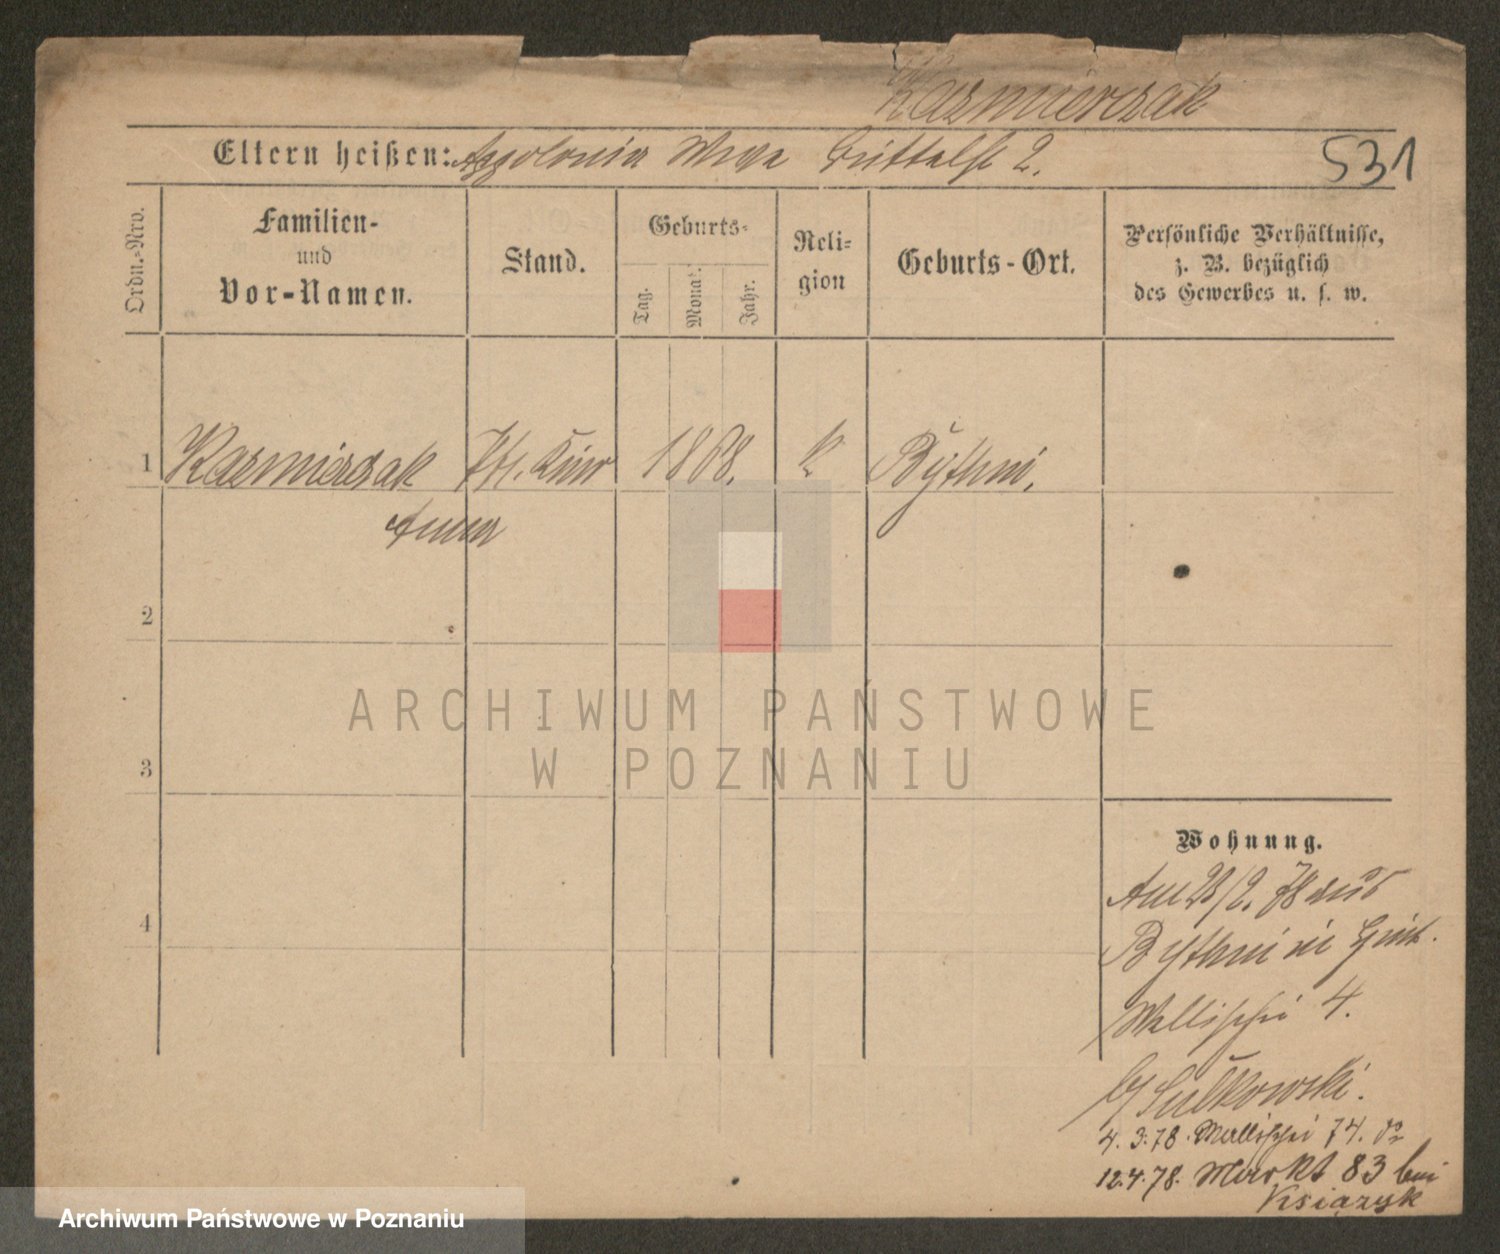 Kazmierczak
Eltern heißen: Appolonia
2.
531
Ordn.-Nro.
Familien-
und
Vor-Namen.
Stand.
Geburts-
Tag.
Monat.
Jahr.
Reli-
gion
Geburts-Ort.
Persönliche Verhältnisse,
z. B. bezüglich
des Gewerbes u. s. w.
1 Kazmierczak 1868. k Bythin.
Anna
2
3
4
ARCHIWUM PAŃSTWOWE
W POZNANIU
Wohnung.
Am 28/2. 78 aus
Bythin in
Wallischei 4.
b/ Sulkowski.
4. 3. 78. Wallischei 74.
12.4.78. Markt 83 bei
Ksiązyk
Archiwum Państwowe w Poznaniu